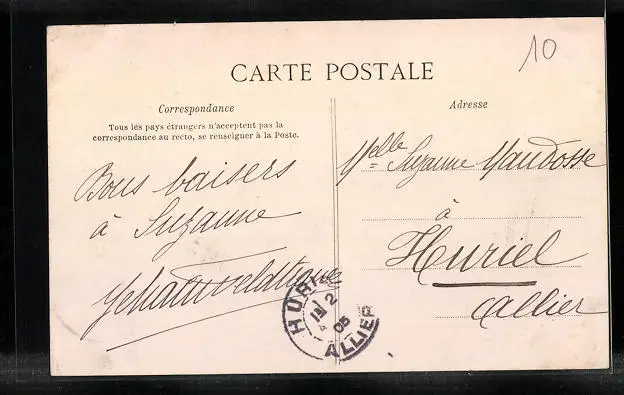 10
CARTE POSTALE
Correspondance
Tous les pays étrangers n'acceptent pas la
correspondance au recto, se renseigner à la Poste.
Bons baisers
à Suzanne
Adresse
Melle Suzanne Maudosse
à
Huriel
Allier
HURIEL
19 2
05
ALLIER